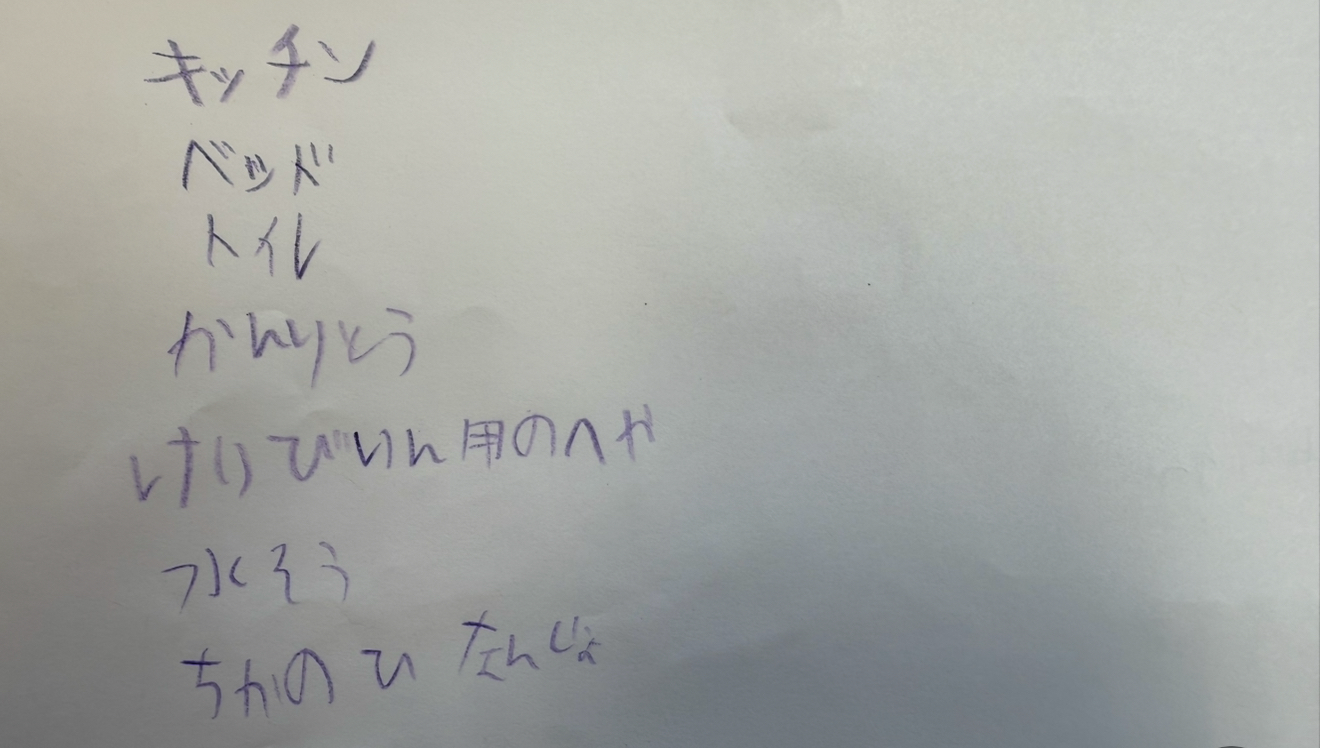 キッチン
ベッド
トイレ
かんりとう
けいびいん用のへや
水そう
ちかのひなんじょ